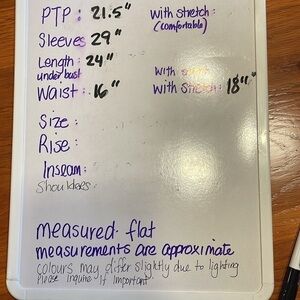 PTP: 21.5" With stretch:
(comfortable)
Sleeves 29"
Length: 24"
under bust With
Waist: 16" With stretch: 18""
Size:
Rise:
Inseam:
Shoulders:
measured flat
measurements are approximate
colours may differ slightly due to lighting
Please inquire if important